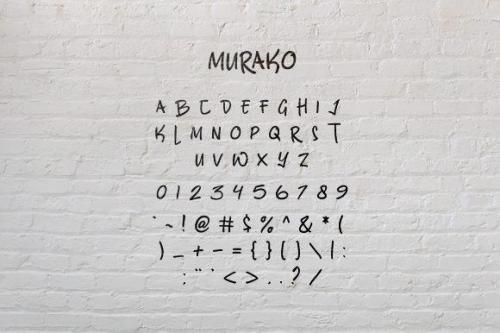 MURAKO
A B C D E F G H I J
K L M N O P Q R S T
U V W X Y Z
0 1 2 3 4 5 6 7 8 9
` ~ ! @ # $ % ^ & * (
) _ + - = { } [ ] \ | :
; " ' < > , . ? /